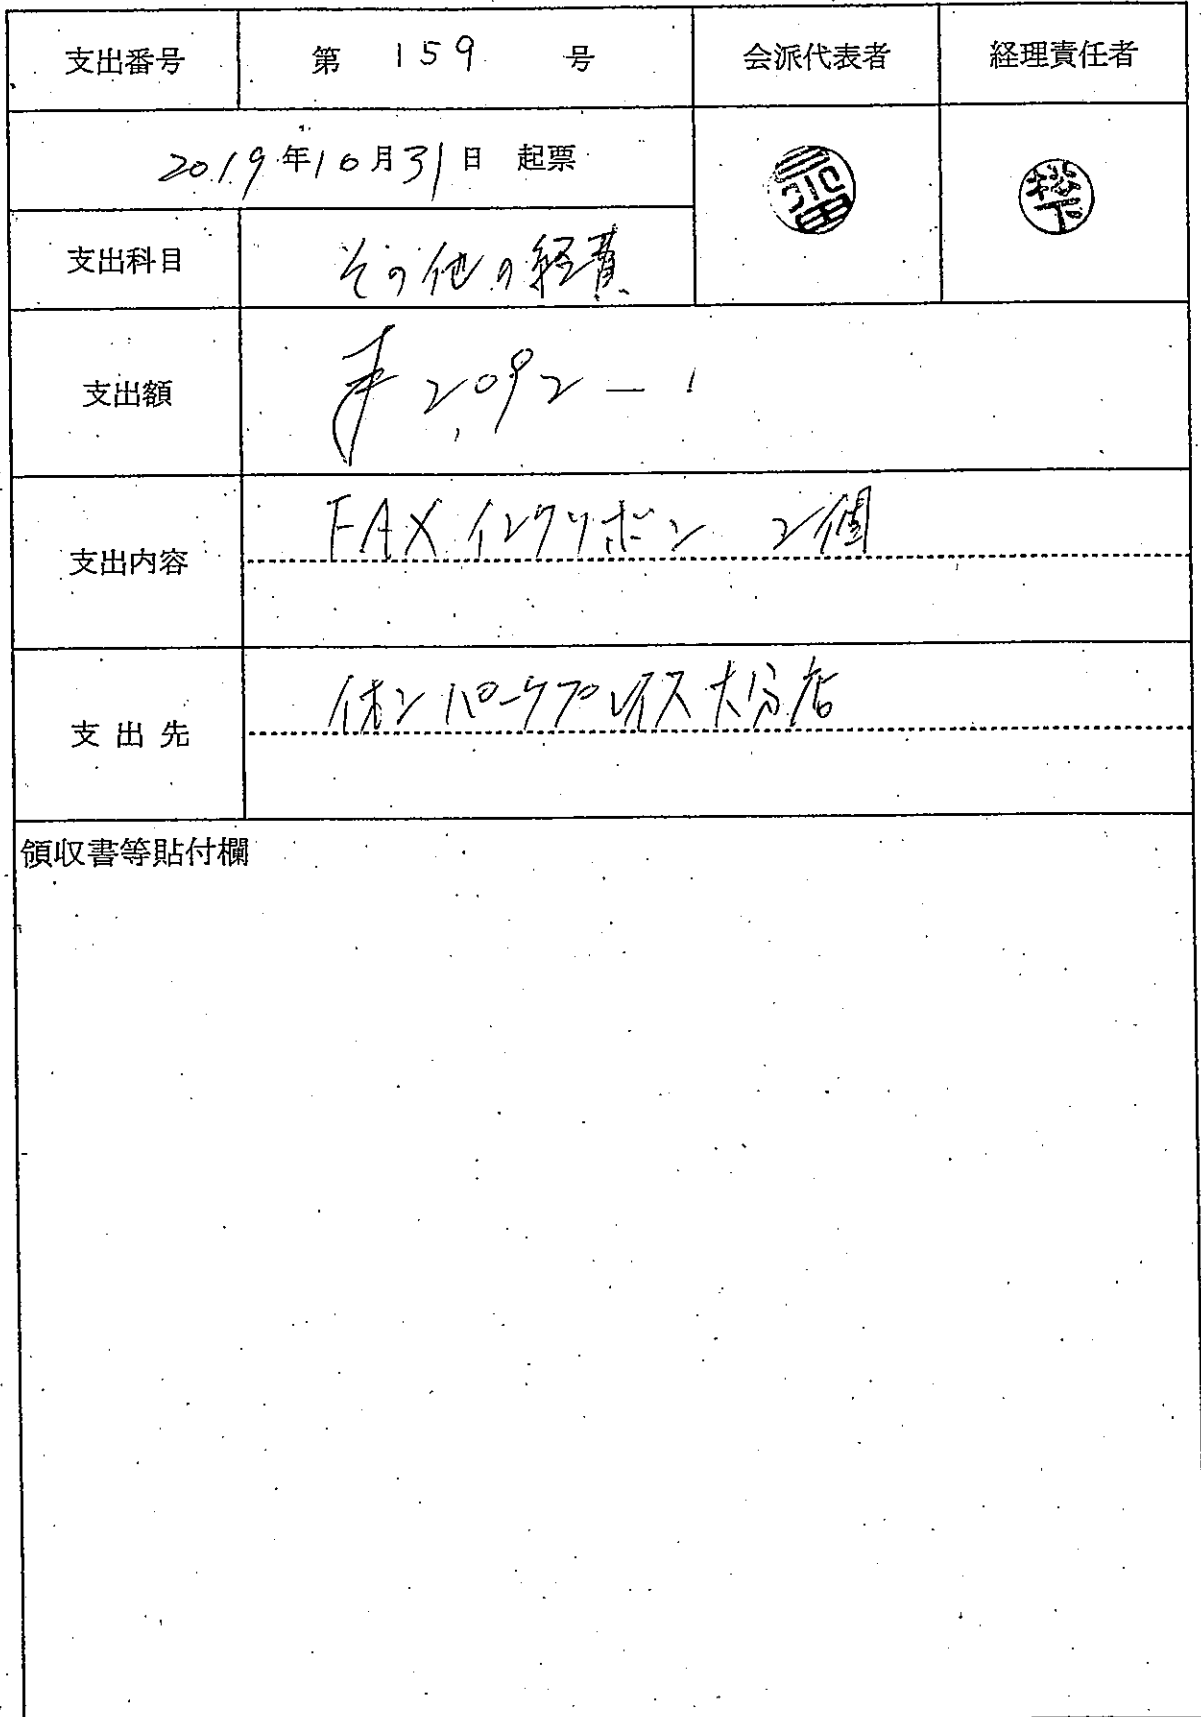 支出番号 第 159 号 会派代表者 経理責任者
2019年10月31日 起票
松下
支出科目 その他の経費
支出額 ¥2,092-
支出内容 FAXインクリボン 2個
支出先 イオンパークプレイス大分店
領収書等貼付欄